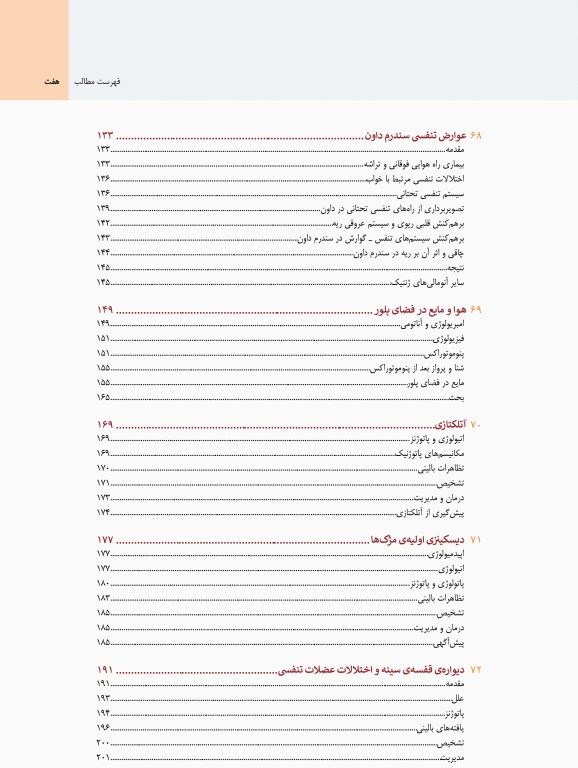 فهرست مطالب هفت
۶۸ عوارض تنفسی سندرم داون ۱۳۳
مقدمه ۱۳۳
بیماری راه هوایی فوقانی و تراشه ۱۳۳
اختلالات تنفسی مرتبط با خواب ۱۳۶
سیستم تنفسی تحتانی ۱۳۶
تصویربرداری از راه‌های تنفسی تحتانی در داون ۱۳۹
برهم‌کنش قلبی ریوی و سیستم عروقی ریه ۱۴۲
برهم‌کنش سیستم‌های تنفس ـ گوارش در سندرم داون ۱۴۳
چاقی و اثر آن بر ریه در سندرم داون ۱۴۴
نتیجه ۱۴۵
سایر آنومالی‌های ژنتیک ۱۴۵
۶۹ هوا و مایع در فضای پلور ۱۴۹
امبریولوژی و آناتومی ۱۴۹
فیزیولوژی ۱۵۱
پنوموتوراکس ۱۵۱
شنا و پرواز بعد از پنوموتوراکس ۱۵۵
مایع در فضای پلور ۱۵۵
بحث ۱۶۵
۷۰ آتلکتازی ۱۶۹
اتیولوژی و پاتوژنز ۱۶۹
مکانیسم‌های پاتوژنیک ۱۶۹
تظاهرات بالینی ۱۷۰
تشخیص ۱۷۱
درمان و مدیریت ۱۷۳
پیش‌گیری از آتلکتازی ۱۷۴
۷۱ دیسکینزی اولیه‌ی مژک‌ها ۱۷۷
اپیدمیولوژی ۱۷۷
اتیولوژی ۱۷۷
پاتولوژی و پاتوژنز ۱۸۰
تظاهرات بالینی ۱۸۳
تشخیص ۱۸۵
درمان و مدیریت ۱۸۵
پیش‌آگهی ۱۸۵
۷۲ دیواره‌ی قفسه‌ی سینه و اختلالات عضلات تنفسی ۱۹۱
مقدمه ۱۹۱
علل ۱۹۳
پاتوژنز ۱۹۴
یافته‌های بالینی ۱۹۶
تشخیص ۲۰۰
مدیریت ۲۰۱